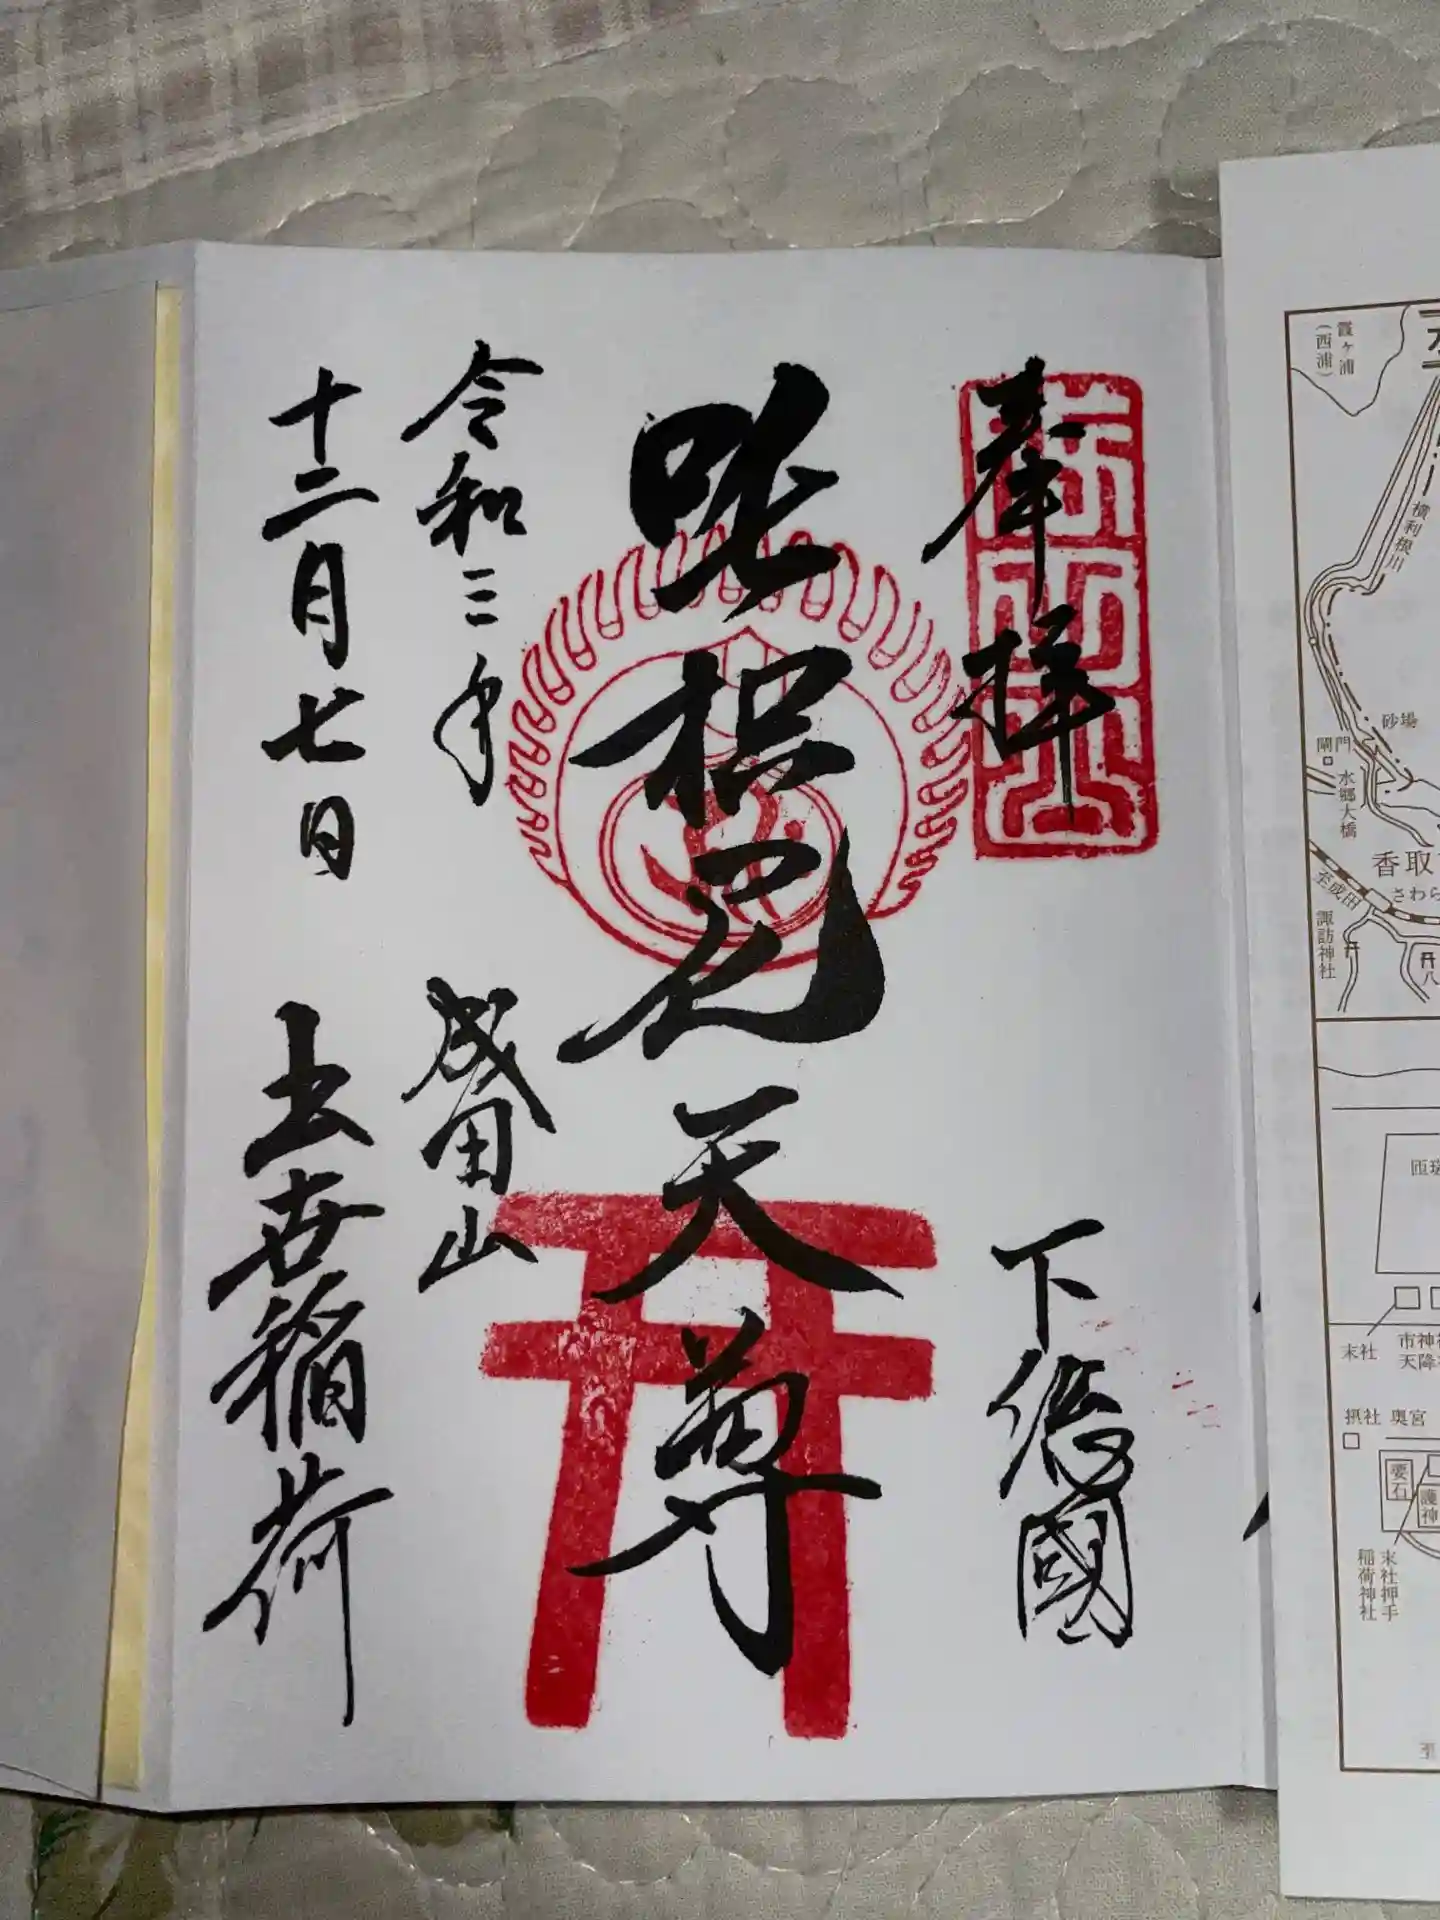 奉拝
下總國
吒枳尼天尊
令和三年
成田山
十二月七日
出世稲荷
霞ヶ浦
(西浦)
横利根川
砂場
閘門
水郷大橋
香取
さわら
至成田
諏訪神社
八
末社
摂社 奥宮
要石
護神
末社押手
稲荷神社
至